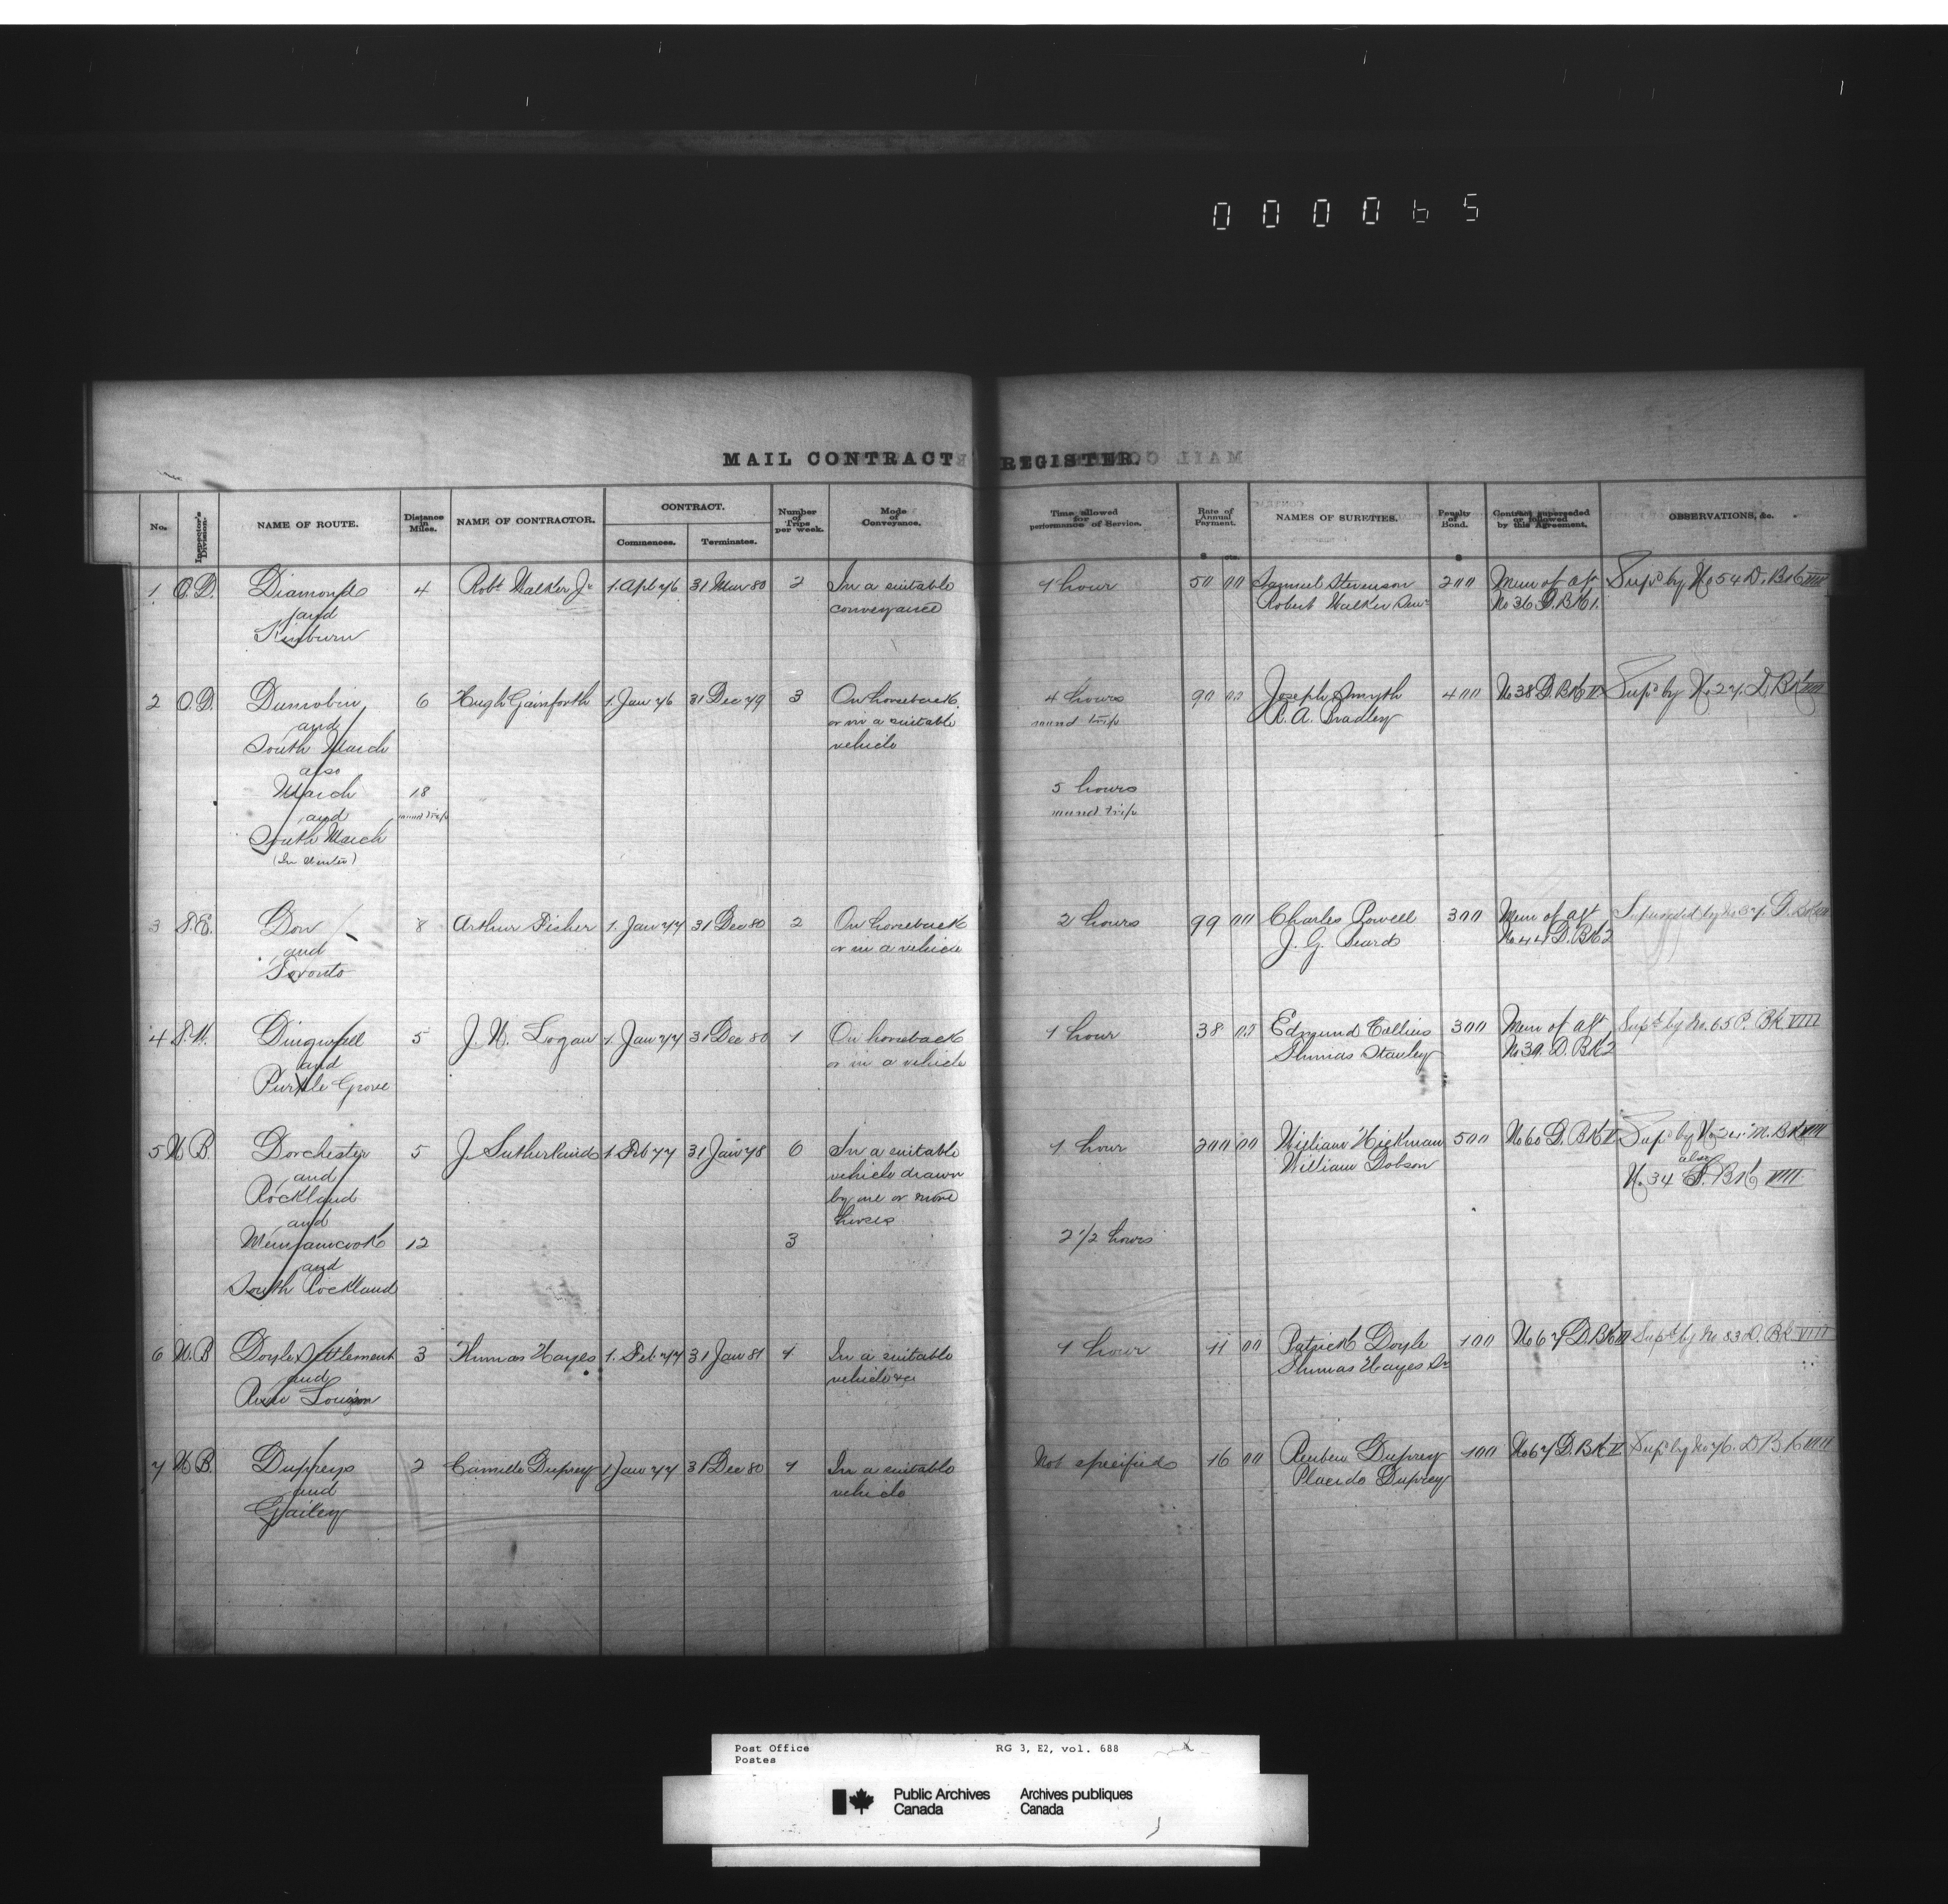 000065
MAIL CONTRACT REGISTER.
No. Inspector's Division. NAME OF ROUTE. Distance in Miles. NAME OF CONTRACTOR. CONTRACT. Commences. Terminates. Number of Trips per week. Mode of Conveyance. Time allowed for performance of Service. Rate of Annual Payment. NAMES OF SURETIES. Penalty of Bond. Contract superseded or followed by this Agreement. OBSERVATIONS, &c.
$ cts. $
1 O.D. Diamond 4 Robt Walker Jr 1. Apl 76 31 Mar 80 2 In a suitable 1 hour 50 00 Samuel Stevenson 200 Mem of agt Supd by No 54 D. Bk VIII
and conveyance Robert Walker Senr No 36 D. Bk 1.
Kinburn
2 O.D. Dunrobin 6 Hugh Gainforth 1. Jan 76 31 Dec 79 3 On horseback 4 hours 90 00 Joseph Smyth 400 No 38 D. Bk II Supd by No 27 D. Bk VIII
and or in a suitable round trip R. A. Bradley
South March vehicle
also
March 18 5 hours
and round trip round trip
South March
(In Winter)
3 T.E. Don 8 Arthur Fisher 1. Jan 77 31 Dec 80 2 On horseback 2 hours 99 00 Charles Powell 300 Mem of agt Superseded by No 37. D.
and or in a vehicle J. G. Beard No 44 D. Bk 2
Toronto
4 Dingwall 5 J. N. Logan 1. Jan 77 31 Dec 80 1 On horseback 1 hour 38 00 Edmund Collins 300 Mem of agt Supd by No. 65 P. Bk VIII
and or in a vehicle Thomas Stanley No 39. D. Bk 2
Purple Grove
5 N.B. Dorchester 5 J. Sutherland 1. Feb 77 31 Jan 78 6 In a suitable 1 hour 200 00 William Hickman 500 No 60 D. Bk II Supd by No M. Bk VIII
and vehicle drawn William Dobson also
Rockland by one or more No. 34 D. Bk VIII
and horses
Memramcook 12 3 2 1/2 hours
and
South Rockland
6 N.B. Doyle Settlement 3 Thomas Hayes 1. Feb 77 31 Jan 81 1 In a suitable 1 hour 41 00 Patrick Doyle 100 No 67 D. Bk II Supd by No 83 D. Bk VIII
and vehicle &c Thomas Hayes Sr
River Louison
7 N.B. Dupreys 2 Camille Duprey 1 Jan 77 31 Dec 80 1 In a suitable Not specified 16 00 Reuben Duprey 100 No 67 D. Bk II Supd by No 76. D Bk VIII
and vehicle Placide Duprey
Gailey
Post Office RG 3, E2, vol. 688
Postes
Public Archives Archives publiques
Canada Canada